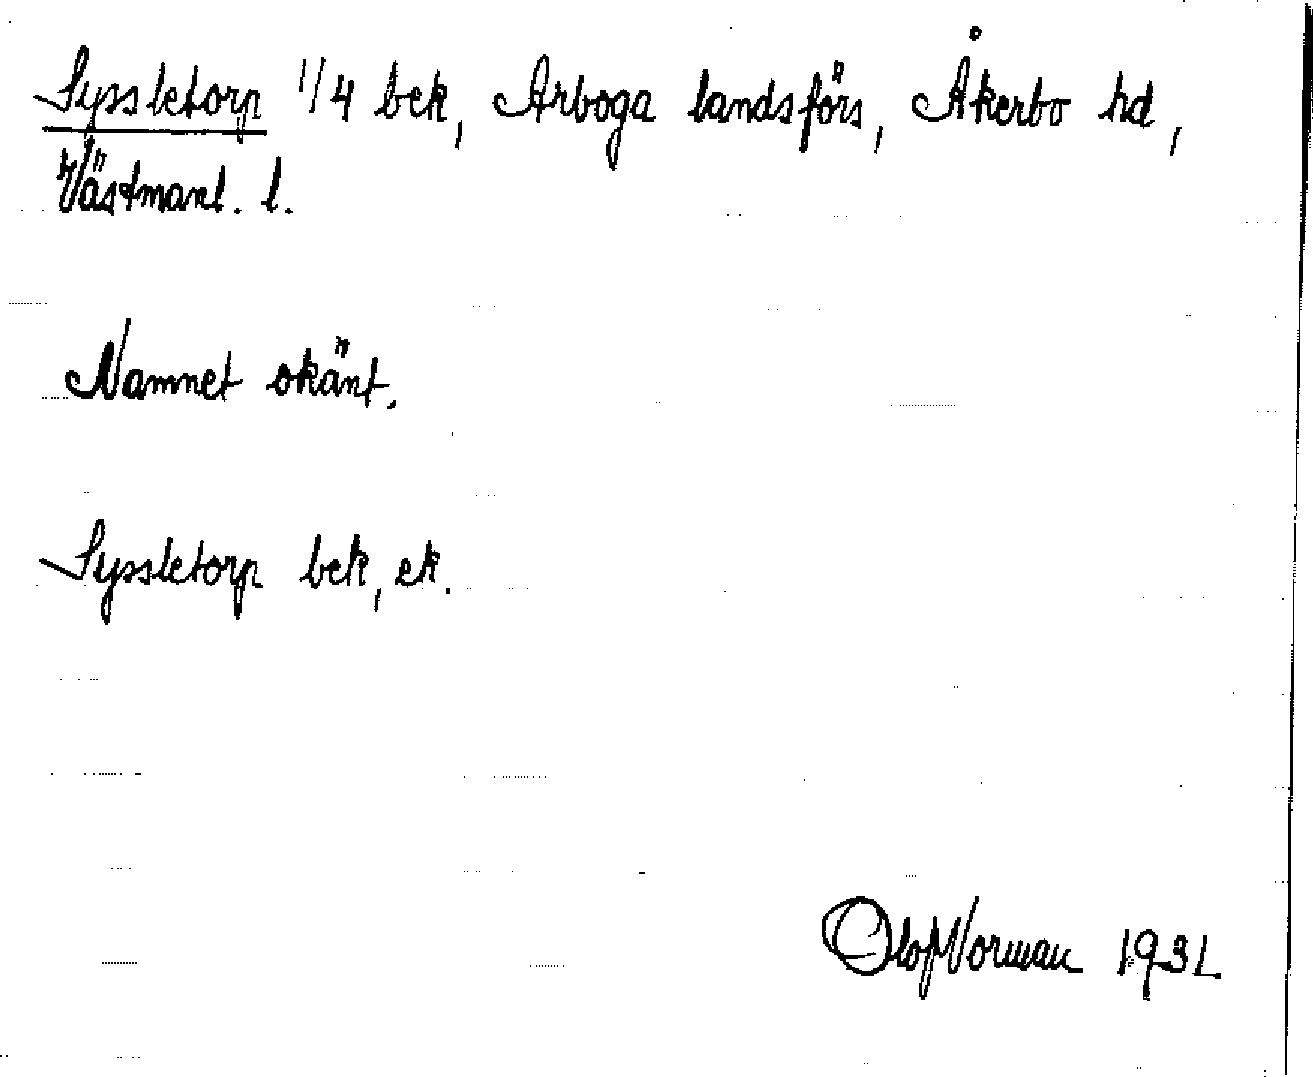 Syssletorp 1/4 bek, Arboga landsförs, Åkerbo hd,
Västmanl. l.
Namnet okänt.
Syssletorp bek, ek.
Olof Norman 1931.